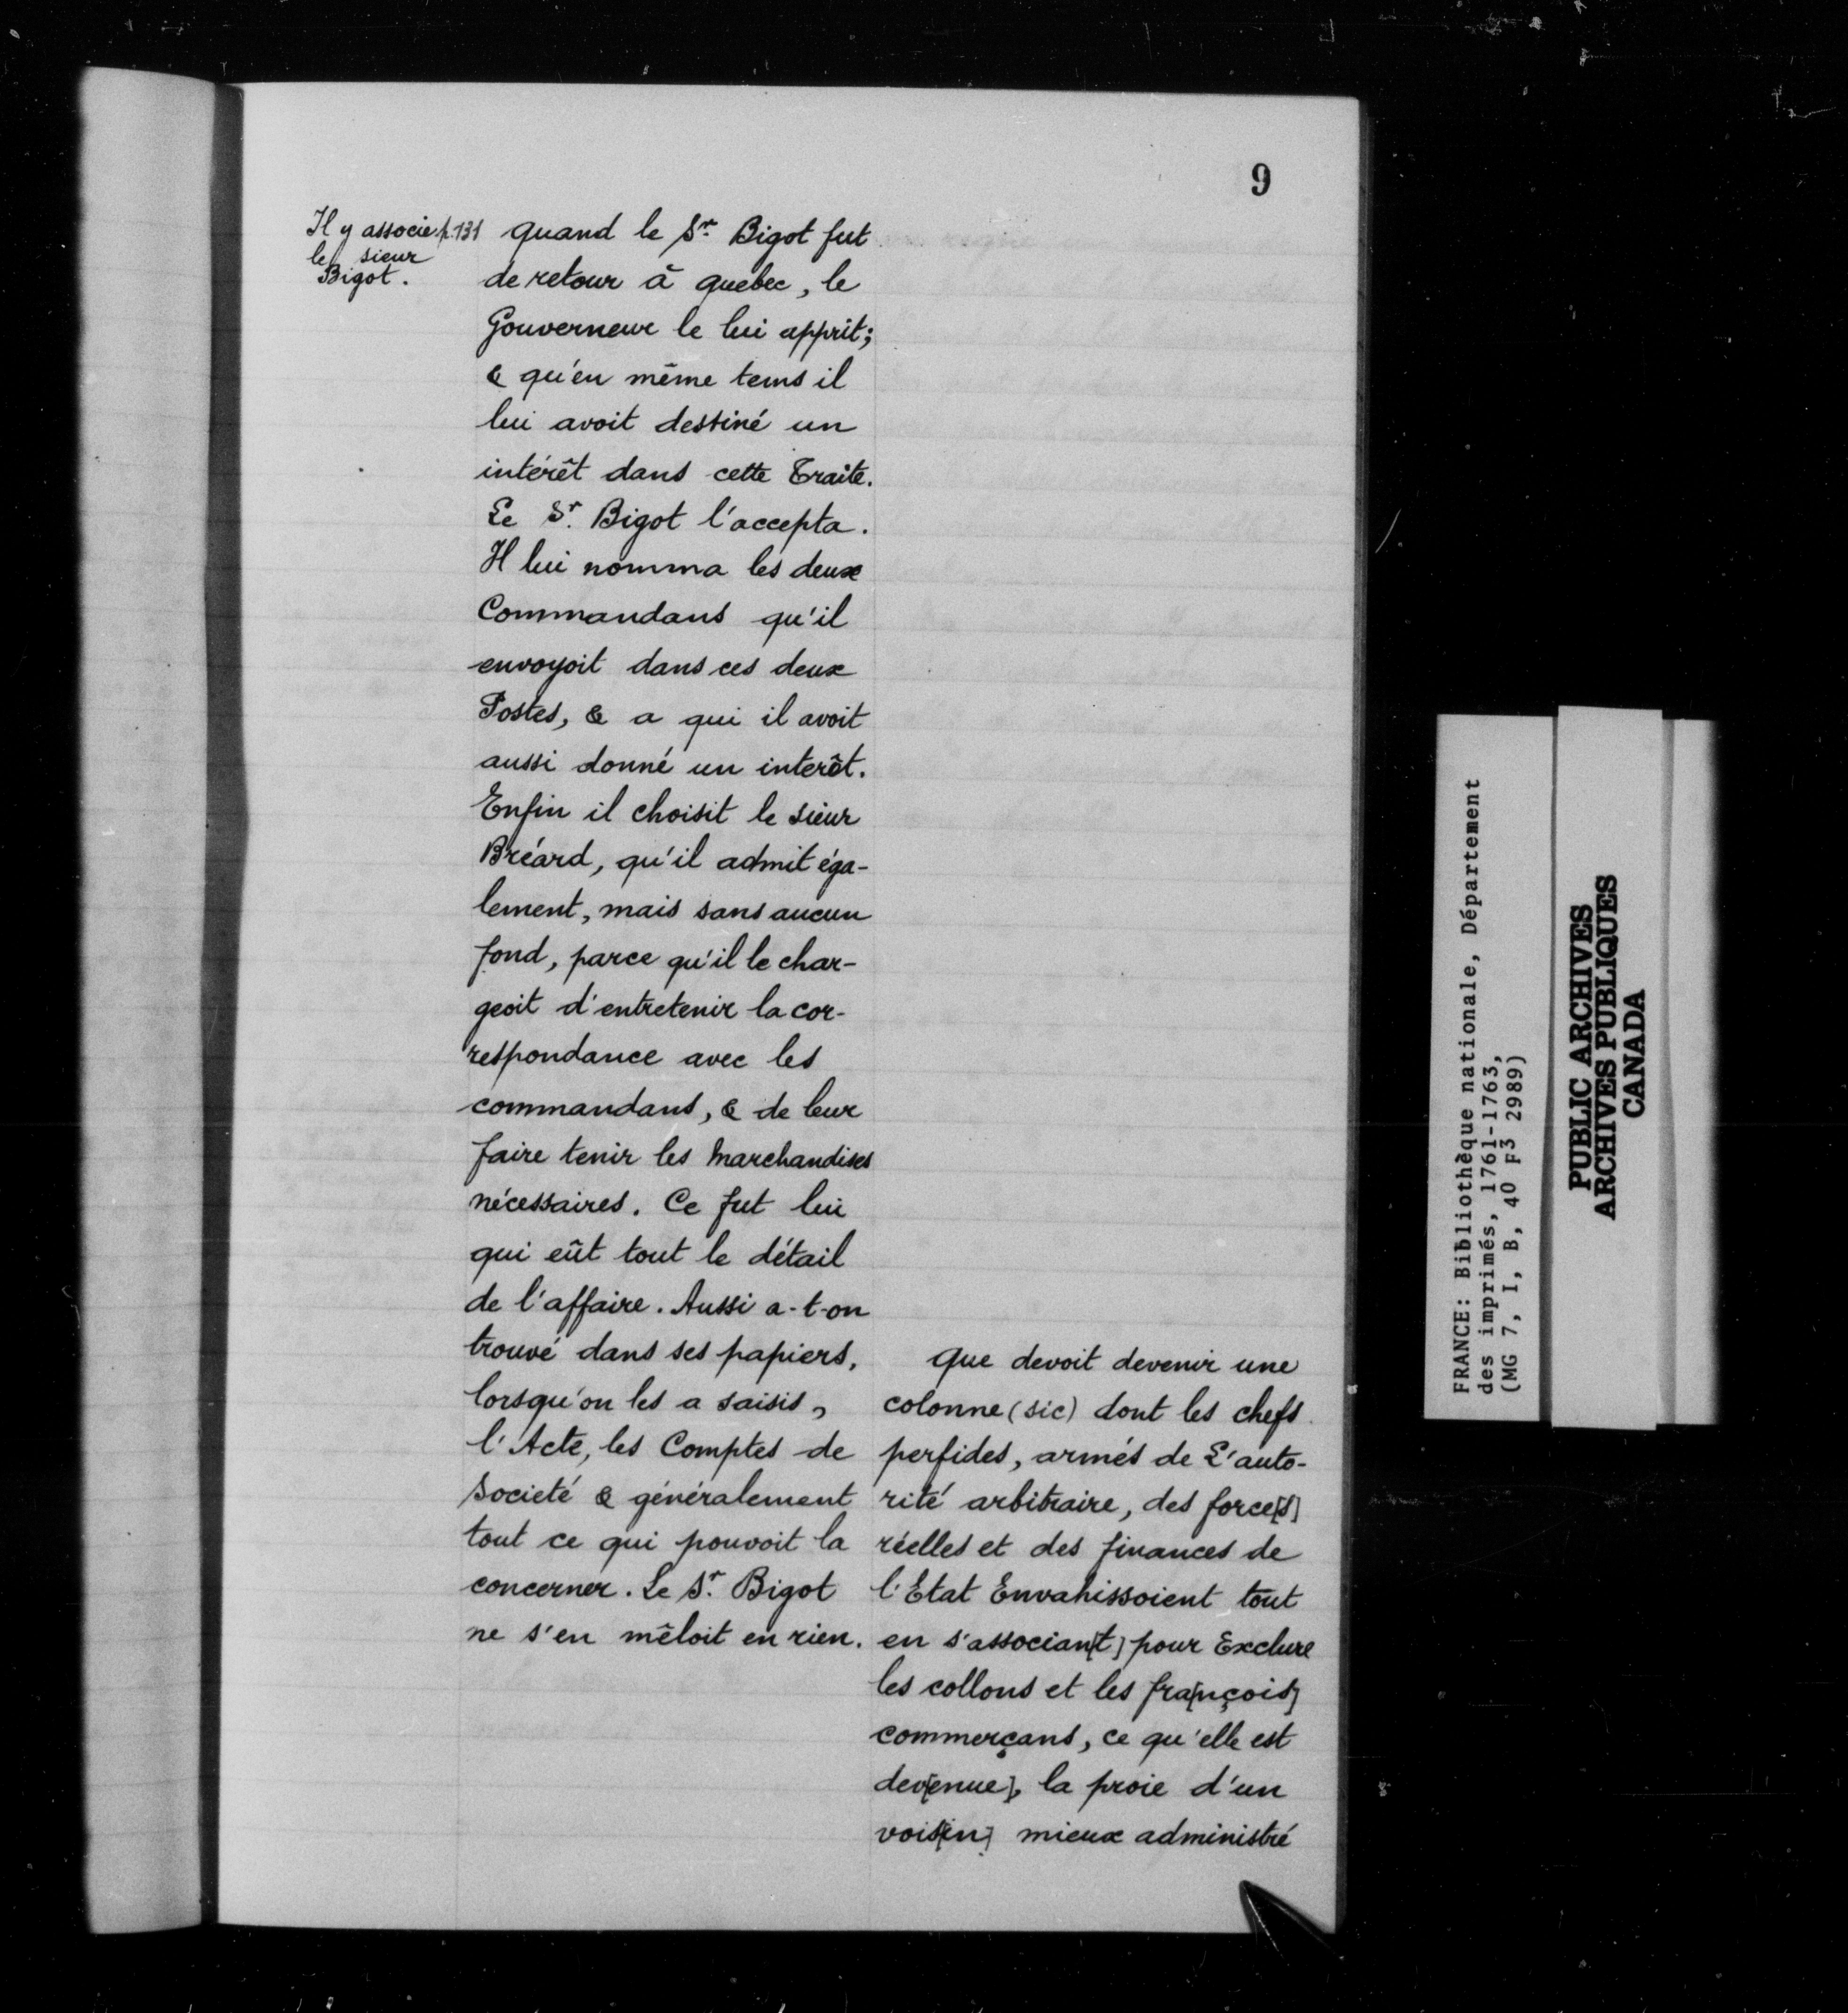 9
Il y associe p. 131
le sieur
Bigot.
quand le Sr. Bigot fut
de retour à quebec, le
Gouverneur le lui apprit;
& qu'en même tems il
lui avoit destiné un
intérêt dans cette Traite.
Le Sr. Bigot l'accepta.
Il lui nomma les deux
Commandans qu'il
envoyoit dans ces deux
Postes, & a qui il avoit
aussi donné un interêt.
Enfin il choisit le sieur
Bréard, qu'il admit éga-
lement, mais sans aucun
fond, parce qu'il le char-
geoit d'entretenir la cor-
respondance avec les
commandans, & de leur
faire tenir les Marchandises
nécessaires. Ce fut lui
qui eût tout le détail
de l'affaire. Aussi a-t-on
trouvé dans ses papiers,
lorsqu'on les a saisis,
l'Acte, les Comptes de
Societé & généralement
tout ce qui pouvoit la
concerner. Le Sr. Bigot
ne s'en mêloit en rien.
Que devoit devenir une
colonne (sic) dont les chefs
perfides, armés de L'auto-
rité arbitraire, des force[s]
réelles et des finances de
l'Etat Envahissoient tout
en s'associan[t] pour Exclure
les collons et les fra[nçois]
commerçans, ce qu'elle est
dev[enue], la proie d'un
vois[in] mieux administré
FRANCE: Bibliothèque nationale, Département
des imprimés, 1761-1763,
(MG 7, I, B, 40 F3 2989)
PUBLIC ARCHIVES
ARCHIVES PUBLIQUES
CANADA